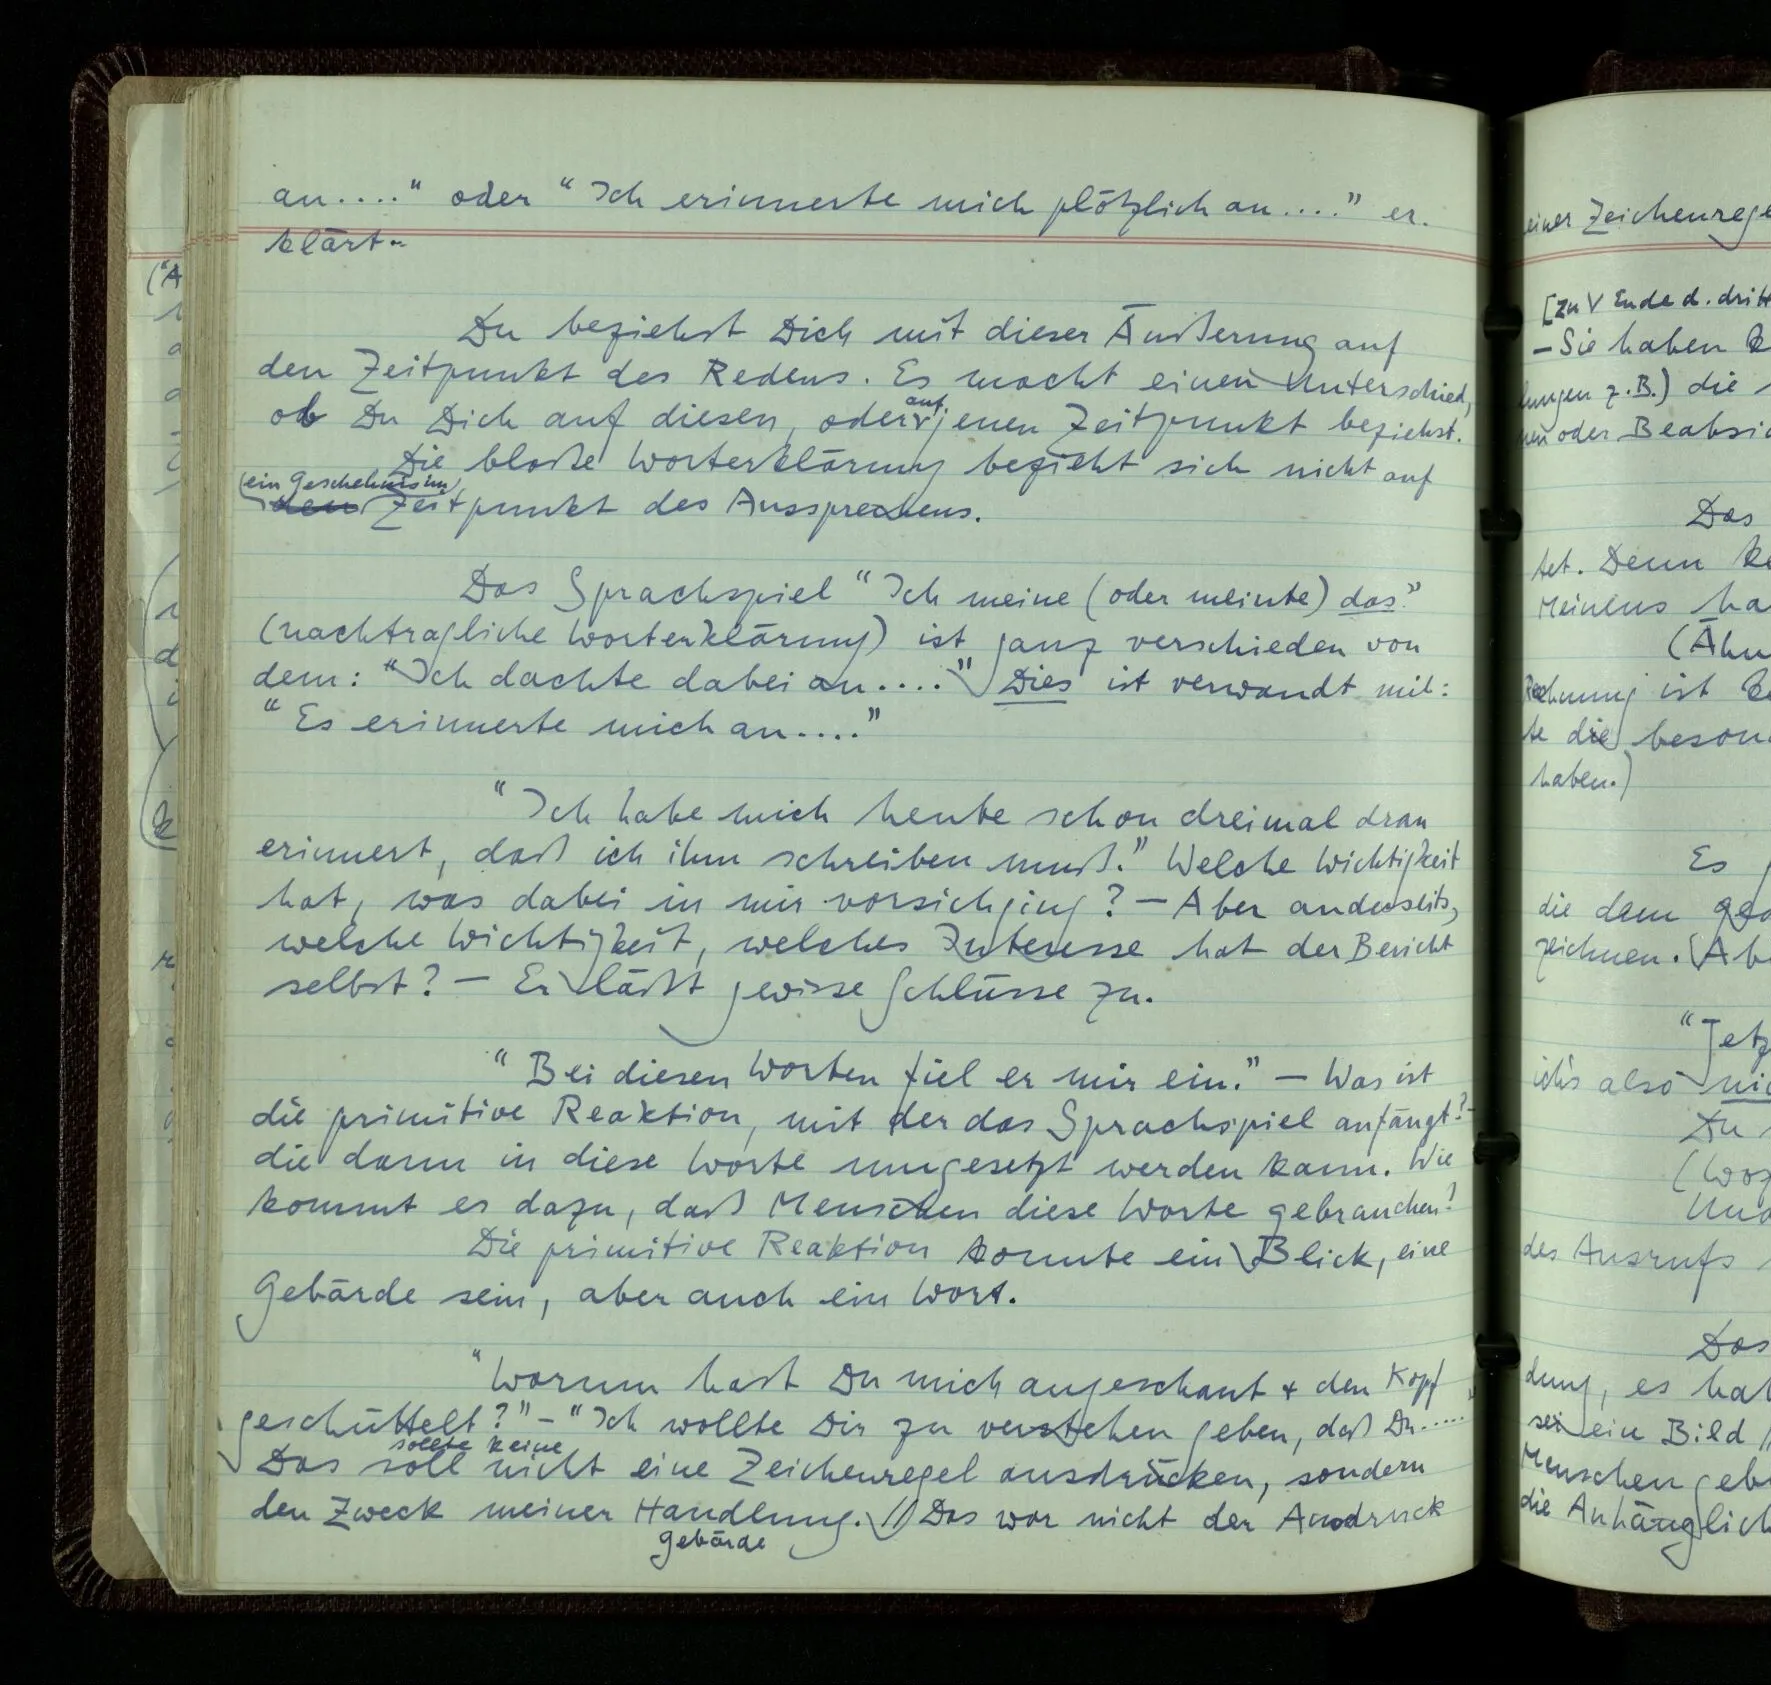 an....” oder “Ich erinnerte mich plötzlich an....” er-
klärt.
Du beziehst Dich mit dieser Äußerung auf
den Zeitpunkt des Redens. Es macht einen Unterschied,
auf
ob Du Dich auf diesen, oder jenen Zeitpunkt beziehst.
Die bloße Worterklärung bezieht sich nicht auf
ein Geschehnis im
den Zeitpunkt des Aussprechens.
Das Sprachspiel “Ich meine (oder meinte) das”
(nachträgliche Worterklärung) ist ganz verschieden von
dem: “Ich dachte dabei an....” Dies ist verwandt mit:
“Es erinnerte mich an....”
“Ich habe mich heute schon dreimal dran
erinnert, daß ich ihm schreiben muß.” Welche Wichtigkeit
hat, was dabei in mir vorsichging? — Aber anderseits,
welche Wichtigkeit, welches Interesse hat der Bericht
selbst? — Er läßt gewisse Schlüsse zu.
“Bei diesen Worten fiel er mir ein.” — Was ist
die primitive Reaktion, mit der das Sprachspiel anfängt? –
die dann in diese Worte umgesetzt werden kann. Wie
kommt es dazu, daß Menschen diese Worte gebrauchen?
Die primitive Reaktion konnte ein Blick, eine
Gebärde sein, aber auch ein Wort.
“Warum hast Du mich angeschaut & den Kopf
geschüttelt?” – “Ich wollte Dir zu verstehen geben, daß Du.....”
sollte keine
Das soll nicht eine Zeichenregel ausdrücken, sondern
den Zweck meiner Handlung. // Das war nicht der Ausdruck
Gebärde
einer Zeichenrege
[Zu V Ende d. dritt
– Sie haben k
z.B.) die
oder Beabsi
Das
tet. Denn ke
Meinens ha
(Ähn
Rechnung ist k
te die beson
haben.)
Es
die dem
zeichnen. Ab
“Jetz
ich's also nic
Du
(Woz
Und
des Ausrufs
Das
dung, es hat
sei ein Bild //
Menschen geb
die Anhänglich